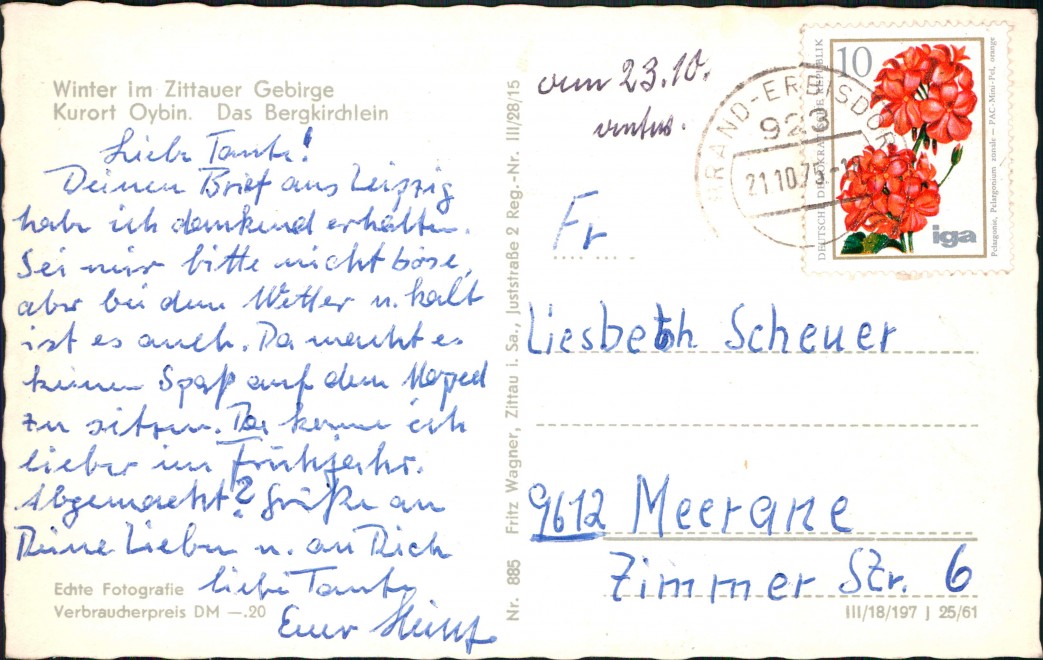 Winter im Zittauer Gebirge
Kurort Oybin. Das Bergkirchlein
Liebe Tante!
Deinen Brief aus Leipzig
habe ich dankend erhalten.
Sei mir bitte nicht böse,
aber bei dem Wetter u. kalt
ist es auch. Da macht es
keinen Spaß auf dem Moped
zu sitzen. Da komme ich
lieber im Frühjahr.
Abgemacht? Grüße an
Deine Lieben u. an Dich
liebe Tante
Euer Heinz
Echte Fotografie
Verbraucherpreis DM —.20
Nr. 885 Fritz Wagner, Zittau i. Sa., Juststraße 2 Reg.-Nr. III/28/15
vom 23.10.
BRAND-ERBISDORF
923
21.10.75
10
DEUTSCHE DEMOKRATISCHE REPUBLIK
Pelargonie, Pelargonium zonale — PAC-Mini-Pel, orange
iga
Fr
Liesbeth Scheuer
9612 Meerane
Zimmer Str. 6
III/18/197 J 25/61